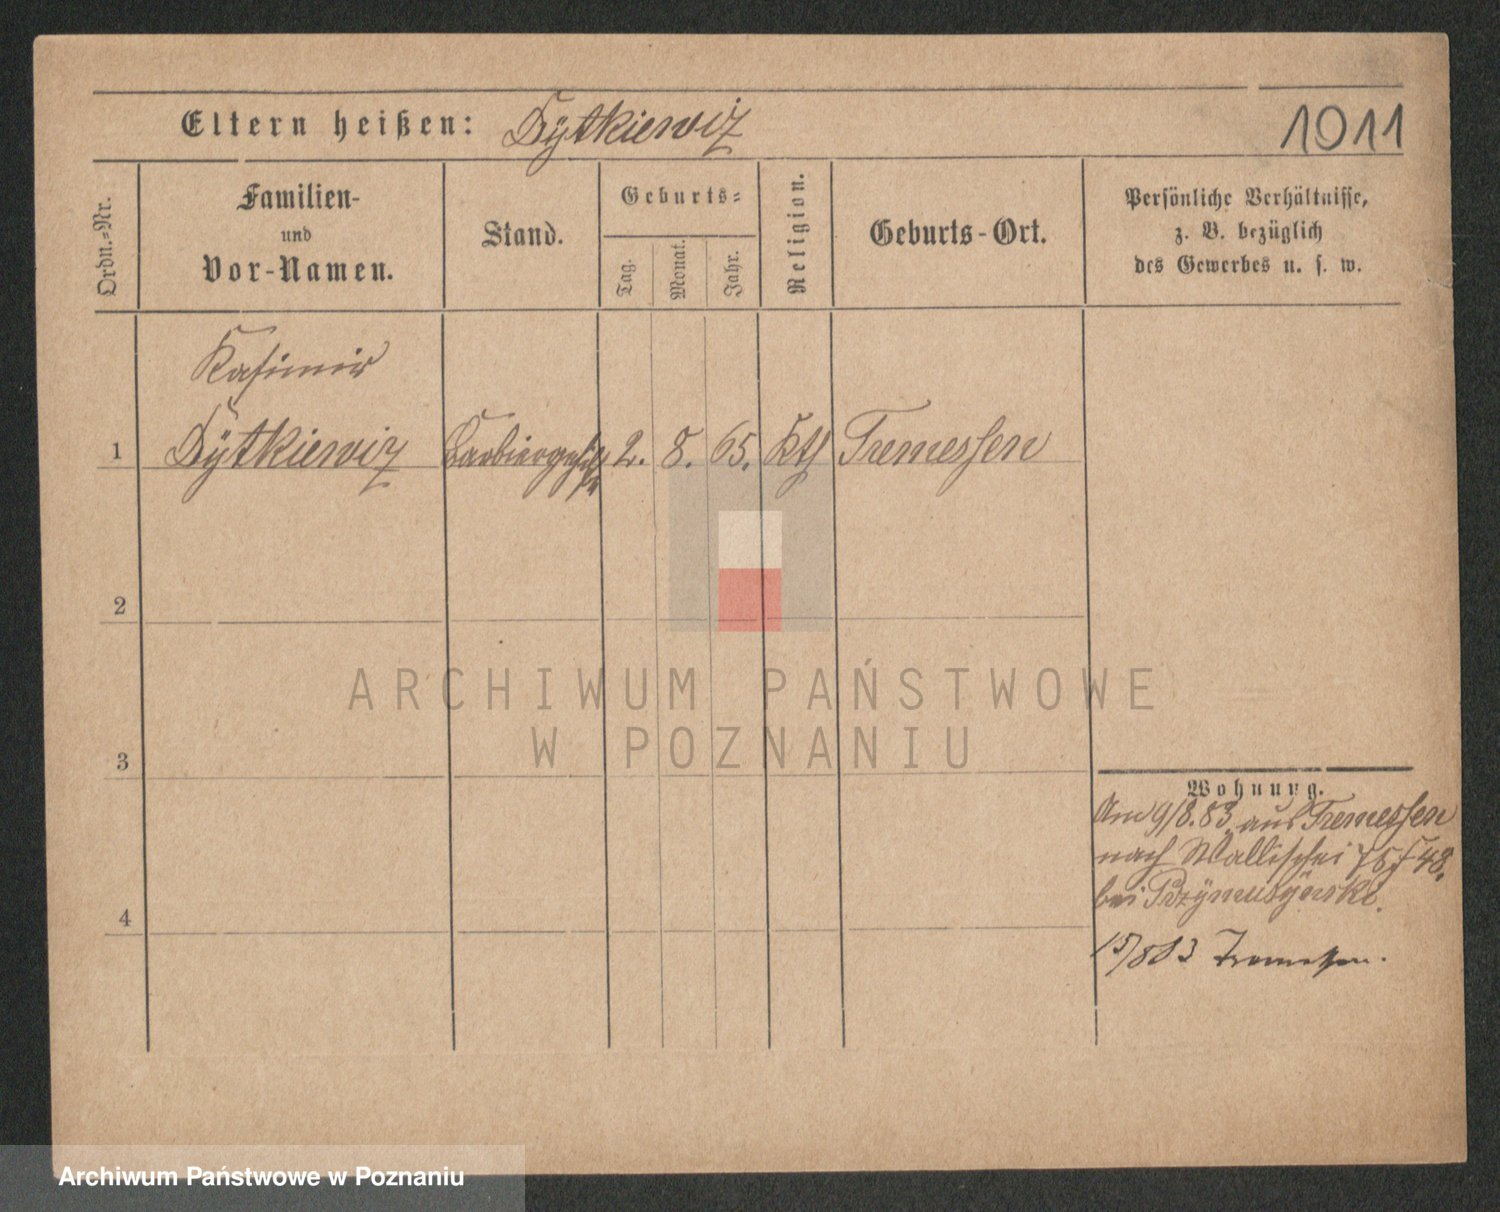 Eltern heißen: Dÿtkiewiz
1011
Ordn.=Nr.
Familien-
und
Vor-Namen.
Stand.
Geburts=
Tag.
Monat.
Jahr.
Religion.
Geburts-Ort.
Persönliche Verhältnisse,
z. B. bezüglich
des Gewerbes u. s. w.
Kasimir
1 Dÿtkiewiz Barbiergehilfe 2. 8. 65. Kth Tremessen
2
3
4
Wohnung.
Am 9/8.83. aus Tremessen
nach Wallischei 75
bei
15/8 83 Tremessen.
ARCHIWUM PAŃSTWOWE
W POZNANIU
Archiwum Państwowe w Poznaniu